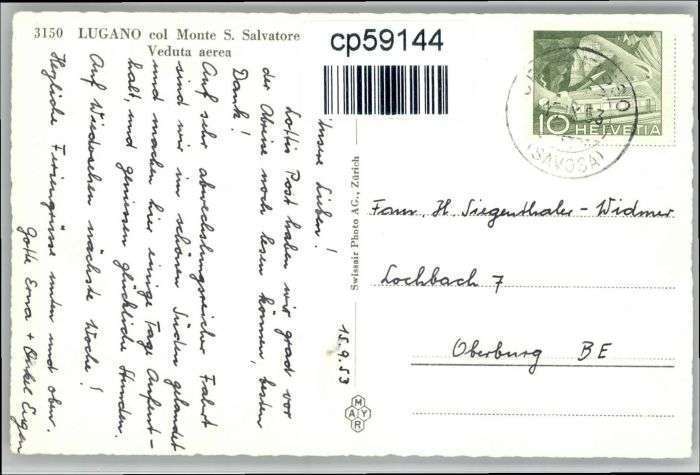 3150 LUGANO col Monte S. Salvatore
Veduta aerea
cp59144
10 HELVETIA
(SAVOSA)
Unsere Lieben!
Lottis Post haben wir grad vor
der Abreise noch lesen können, besten
Dank!
Auf sehr abwechslungsreicher Fahrt
sind wir im schönen Süden gelandet
und machen hier einige Tage Aufent-
halt, und geniessen glückliche Stunden.
Auf Wiedersehen nächste Woche!
Herzliche Feriengrüsse unden und ober.
Gotte Erna + Onkel Eugen
15.9.53
Swissair Photo AG., Zürich
MAYR
Fam. H. Siegenthaler-Widmer
Lochbach 7
Oberburg BE